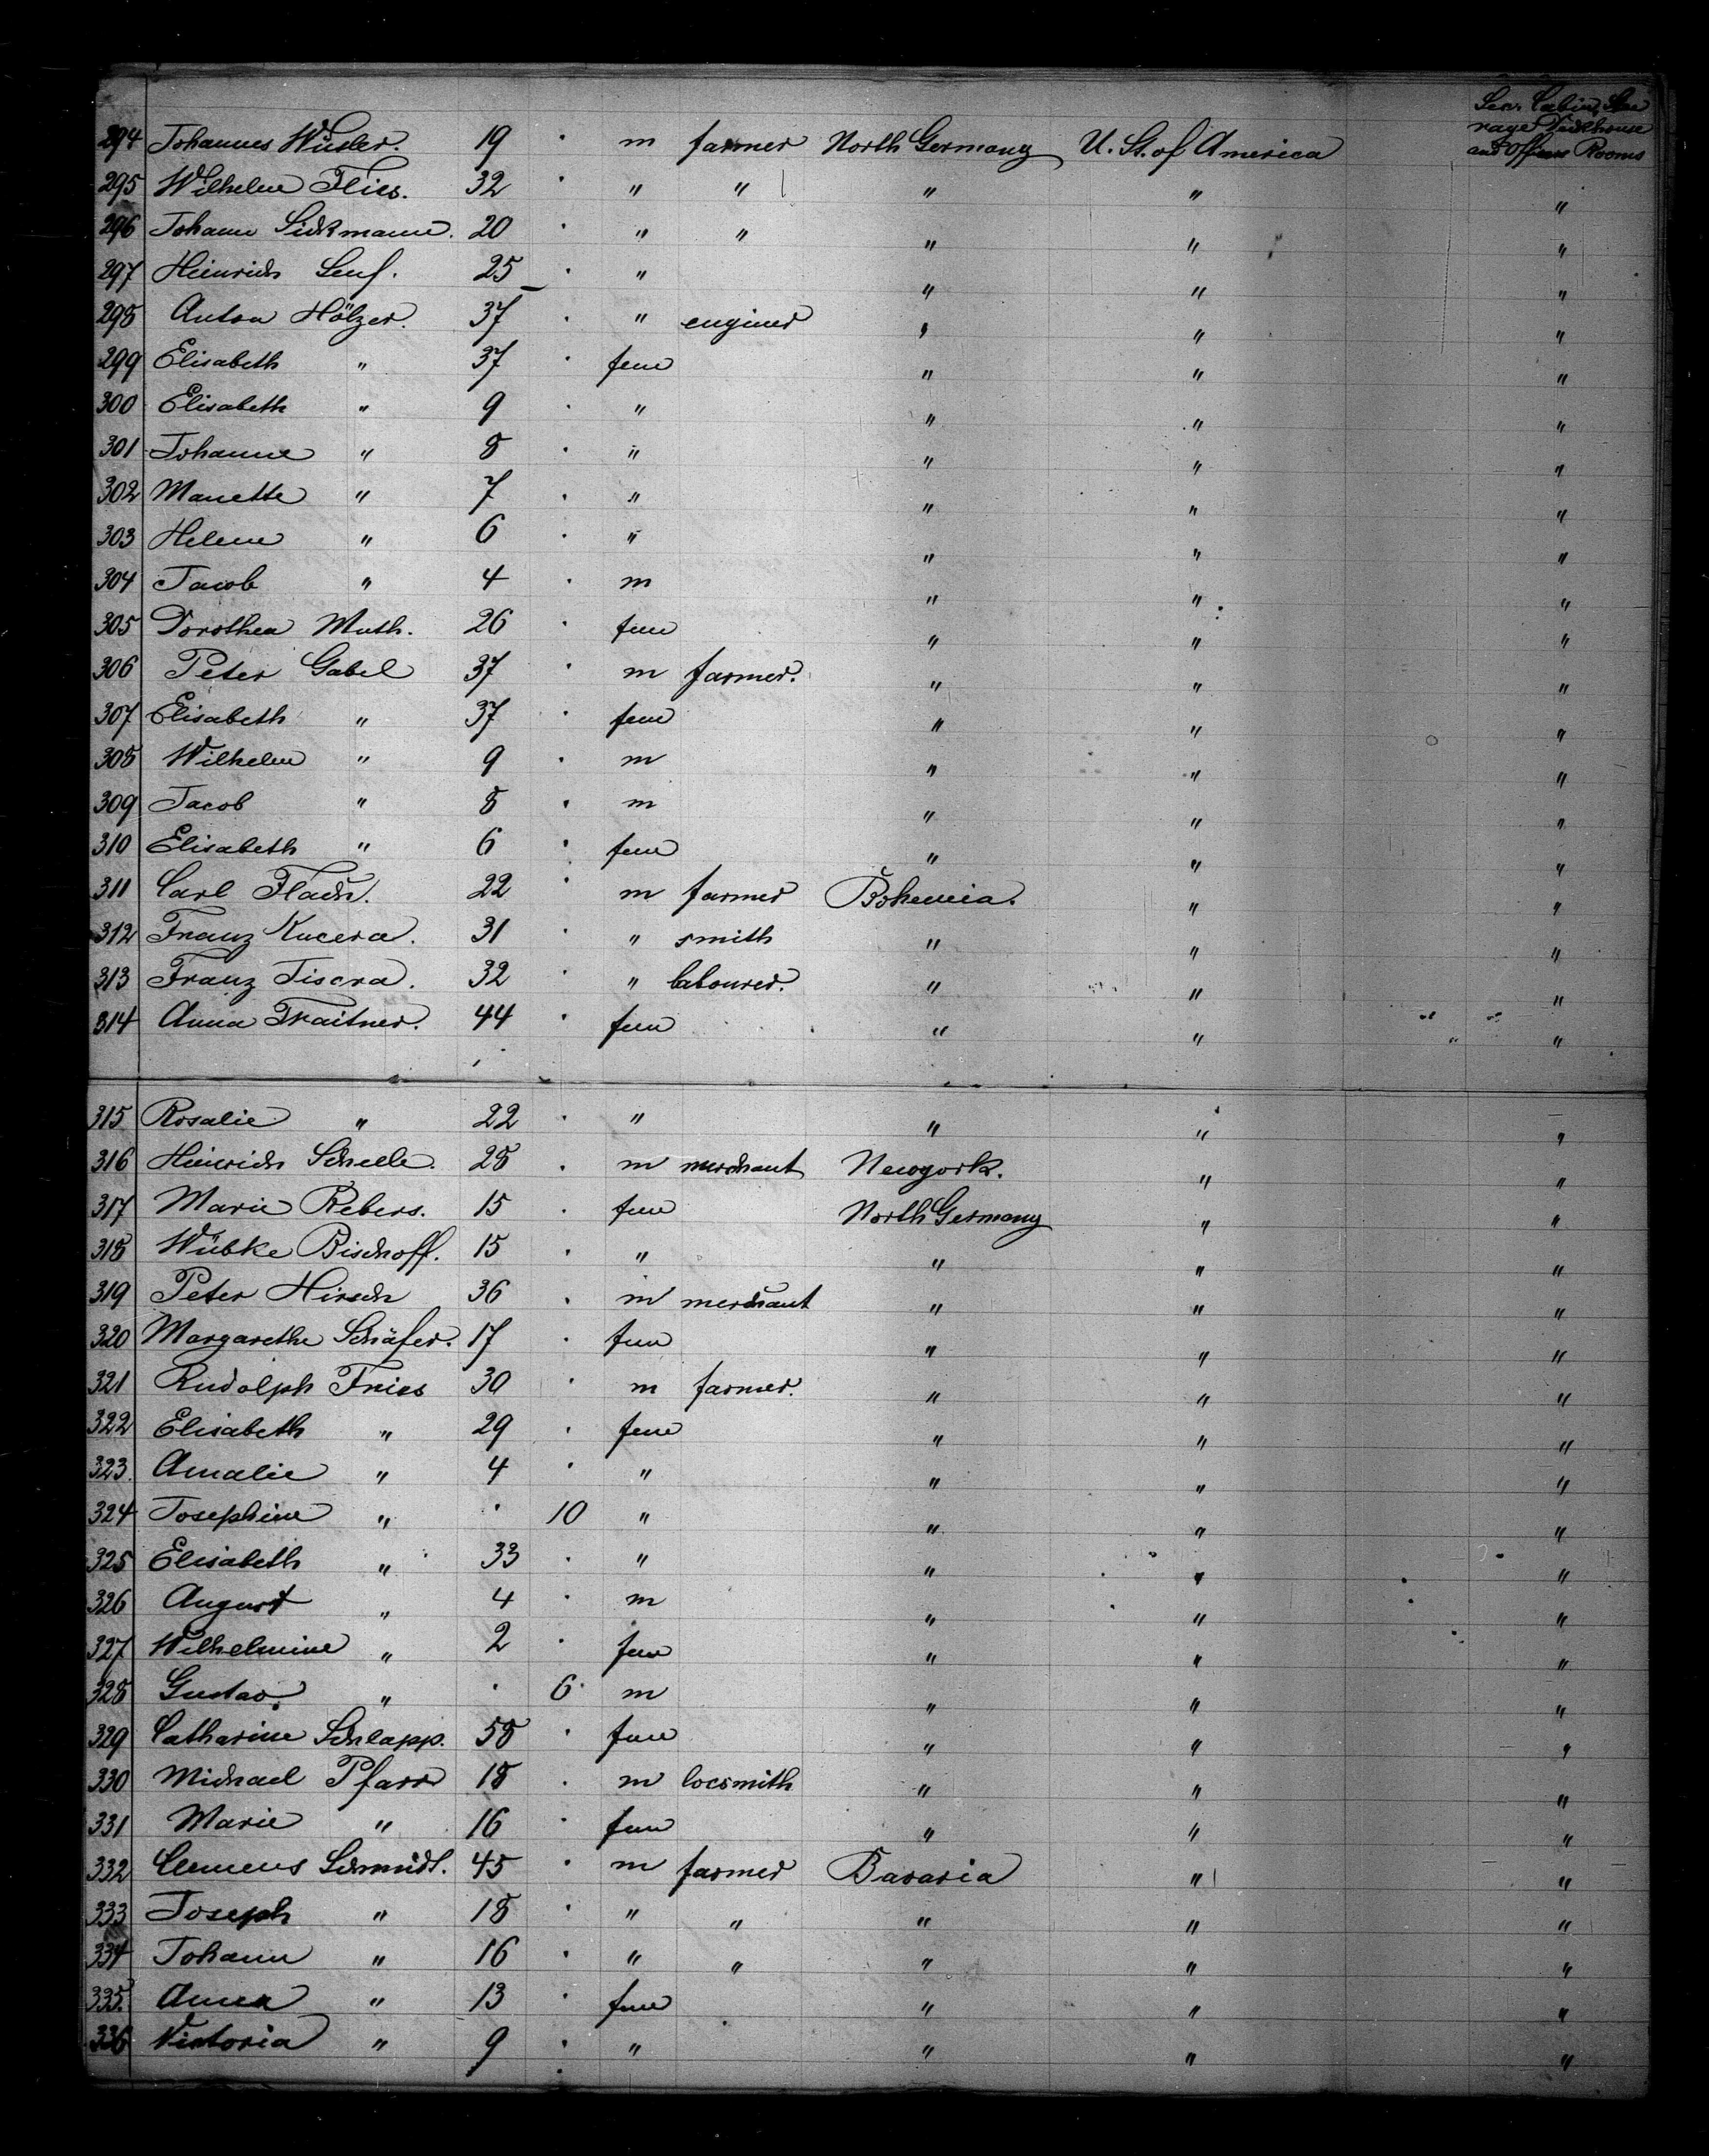 Sec. Cabin, Stee
rage Deckhouse
and Officers Rooms
294 Johannes Wüsler. 19 · m farmer North Germany U. St. of America
295 Wilhelm Flies. 32 · " " " " "
296 Johann Sickmann. 20 · " " " " "
297 Heinrich Senf. 25 · " " " "
298 Anton Hölzer. 37 · " enginer " " "
299 Elisabeth " 37 · fem " " "
300 Elisabeth " 9 · " " " "
301 Johanne " 8 · " " " "
302 Manette " 7 · " " " "
303 Helene " 6 · " " " "
304 Jacob " 4 · m " " "
305 Dorothea Muth. 26 · fem " " "
306 Peter Gabel 37 · m farmer. " " "
307 Elisabeth " 37 · fem " " "
308 Wilhelm " 9 · m " " "
309 Jacob " 8 · m " " "
310 Elisabeth " 6 · fem " " "
311 Carl Flach. 22 · m farmer Bohemia. " "
312 Franz Kucera. 31 · " smith " " "
313 Franz Tiscra. 32 · " labourer. " " "
314 Anna Traitner. 44 · fem " " "
315 Rosalie " 22 · " " " "
316 Heinrich Scheele. 28 · m merchant Newyork. " "
317 Marie Rebers. 15 · fem North Germany " "
318 Wübke Bischoff. 15 · " " " "
319 Peter Hirsch 36 · m merchant " " "
320 Margarethe Schäfer. 17 · fem " " "
321 Rudolph Fries 30 · m farmer. " " "
322 Elisabeth " 29 · fem " " "
323. Amalie " 4 · " " " "
324 Josephine " · 10 " " " "
325 Elisabeth " 33 · " " " "
326 August " 4 · m " " "
327 Wilhelmine " 2 · fem " " "
328 Gustav. " · 6 · m " " "
329 Catharine Schlapp. 58 · fem " " "
330 Michael Pfarr 18 · m locsmith " " "
331 Marie " 16 · fem " " "
332 Clemens Schmidt. 45 · m farmer Bavaria " "
333 Joseph " 18 · " " " " "
334 Johann " 16 · " " " " "
335. Anna " 13 · fem " " "
336 Victoria " 9 · " " " "